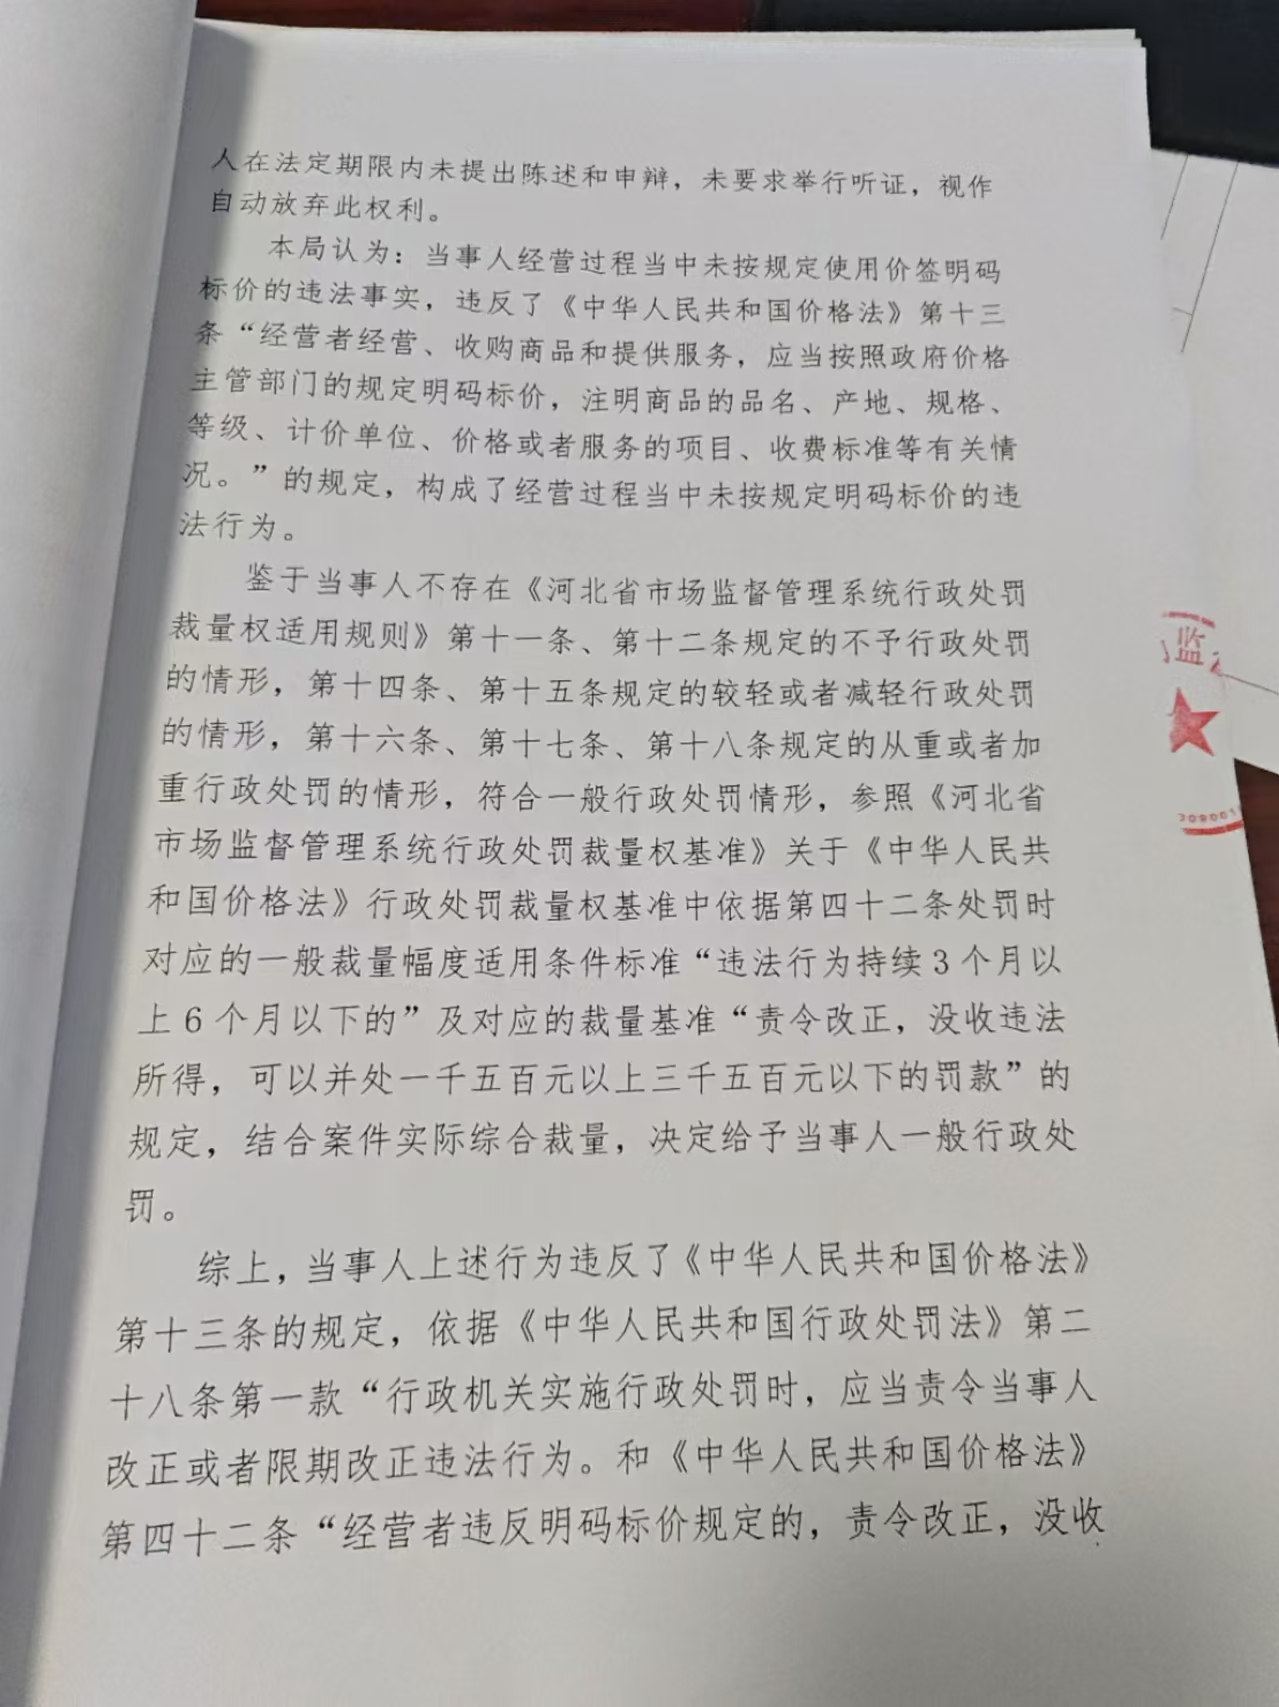 人在法定期限内未提出陈述和申辩，未要求举行听证，视作
自动放弃此权利。
本局认为：当事人经营过程当中未按规定使用价签明码
标价的违法事实，违反了《中华人民共和国价格法》第十三
条“经营者经营、收购商品和提供服务，应当按照政府价格
主管部门的规定明码标价，注明商品的品名、产地、规格、
等级、计价单位、价格或者服务的项目、收费标准等有关情
况。”的规定，构成了经营过程当中未按规定明码标价的违
法行为。
鉴于当事人不存在《河北省市场监督管理系统行政处罚
裁量权适用规则》第十一条、第十二条规定的不予行政处罚
的情形，第十四条、第十五条规定的较轻或者减轻行政处罚
的情形，第十六条、第十七条、第十八条规定的从重或者加
重行政处罚的情形，符合一般行政处罚情形，参照《河北省
市场监督管理系统行政处罚裁量权基准》关于《中华人民共
和国价格法》行政处罚裁量权基准中依据第四十二条处罚时
对应的一般裁量幅度适用条件标准“违法行为持续3个月以
上6个月以下的”及对应的裁量基准“责令改正，没收违法
所得，可以并处一千五百元以上三千五百元以下的罚款”的
规定，结合案件实际综合裁量，决定给予当事人一般行政处
罚。
综上，当事人上述行为违反了《中华人民共和国价格法》
第十三条的规定，依据《中华人民共和国行政处罚法》第二
十八条第一款“行政机关实施行政处罚时，应当责令当事人
改正或者限期改正违法行为。和《中华人民共和国价格法》
第四十二条“经营者违反明码标价规定的，责令改正，没收
监